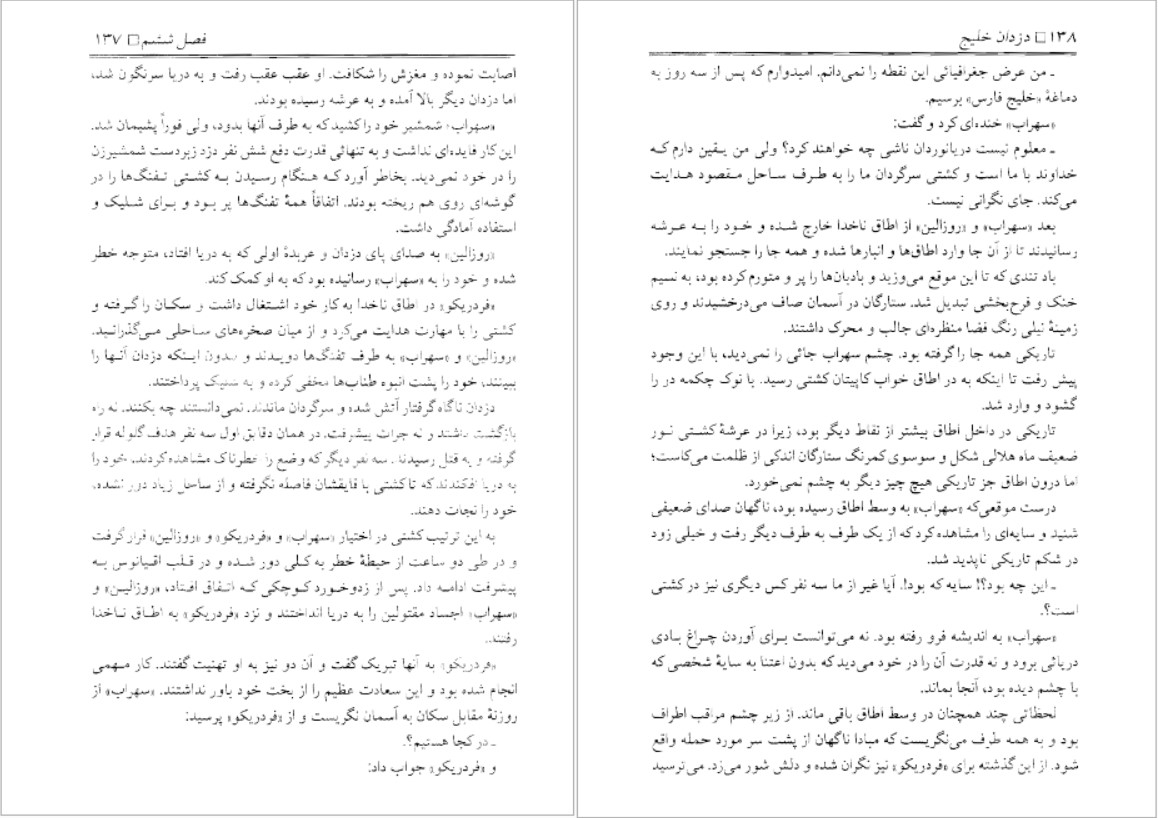 فصل ششم □ ۱۳۷
اصابت نموده و مغزش را شکافت. او عقب عقب رفت و به دریا سرنگون شد،
اما دزدان دیگر بالا آمده و به عرشه رسیده بودند.
«سهراب» شمشیر خود را کشید که به طرف آنها بدود، ولی فوراً پشیمان شد.
این کار فایده‌ای نداشت و به تنهائی قدرت دفع شش نفر دزد زبردست شمشیرزن
را در خود نمی‌دید. بخاطر آورد که هنگام رسیدن به کشتی تفنگ‌ها را در
گوشه‌ای روی هم ریخته بودند. اتفاقاً همهٔ تفنگ‌ها پر بود و برای شلیک و
استفاده آمادگی داشت.
«روزالین» به صدای پای دزدان و عربدهٔ اولی که به دریا افتاد، متوجه خطر
شده و خود را به «سهراب» رسانیده بود که به او کمک کند.
«فردریکو» در اطاق ناخدا به کار خود اشتغال داشت و سکان را گرفته و
کشتی را با مهارت هدایت می‌کرد و از میان صخره‌های ساحلی می‌گذرانید.
«روزالین» و «سهراب» به طرف تفنگ‌ها دویدند و بدون اینکه دزدان آنها را
ببینند، خود را پشت انبوه طناب‌ها مخفی کرده و به شلیک پرداختند.
دزدان ناگاه گرفتار آتش شده و سرگردان ماندند. نمی‌دانستند چه بکنند. نه راه
بازگشت داشتند و نه جرات پیشرفت. در همان دقایق اول سه نفر هدف گلوله قرار
گرفته و به قتل رسیدند. سه نفر دیگر که وضع را خطرناک مشاهده کردند، خود را
به دریا افکندند که تا کشتی با قایقشان فاصله نگرفته و از ساحل زیاد دور نشده،
خود را نجات دهند.
به این ترتیب کشتی در اختیار «سهراب» و «فردریکو» و «روزالین» قرار گرفت
و در طی دو ساعت از حیطهٔ خطر به کلی دور شده و در قلب اقیانوس به
پیشرفت ادامه داد. پس از زدوخورد کوچکی که اتفاق افتاد، «روزالین» و
«سهراب» اجساد مقتولین را به دریا انداختند و نزد «فردریکو» به اطاق ناخدا
رفتند.
«فردریکو» به آنها تبریک گفت و آن دو نیز به او تهنیت گفتند. کار مهمی
انجام شده بود و این سعادت عظیم را از بخت خود باور نداشتند. «سهراب» از
روزنهٔ مقابل سکان به آسمان نگریست و از «فردریکو» پرسید:
ـ در کجا هستیم؟.
و «فردریکو» جواب داد:
۱۳۸ □ دزدان خلیج
ـ من عرض جغرافیائی این نقطه را نمی‌دانم. امیدوارم که پس از سه روز به
دماغهٔ «خلیج فارس» برسیم.
«سهراب» خنده‌ای کرد و گفت:
ـ معلوم نیست دریانوردان ناشی چه خواهند کرد؟ ولی من یقین دارم که
خداوند با ما است و کشتی سرگردان ما را به طرف ساحل مقصود هدایت
می‌کند. جای نگرانی نیست.
بعد «سهراب» و «روزالین» از اطاق ناخدا خارج شده و خود را به عرشه
رسانیدند تا از آن جا وارد اطاق‌ها و انبارها شده و همه جا را جستجو نمایند.
باد تندی که تا این موقع می‌وزید و بادبان‌ها را پر و متورم کرده بود، به نسیم
خنک و فرح‌بخشی تبدیل شد. ستارگان در آسمان صاف می‌درخشیدند و روی
زمینهٔ نیلی رنگ فضا منظره‌ای جالب و محرک داشتند.
تاریکی همه جا را گرفته بود. چشم سهراب جائی را نمی‌دید، با این وجود
پیش رفت تا اینکه به در اطاق خواب کاپیتان کشتی رسید. با نوک چکمه در را
گشود و وارد شد.
تاریکی در داخل اطاق بیشتر از نقاط دیگر بود، زیرا در عرشهٔ کشتی نور
ضعیف ماه هلالی شکل و سوسوی کمرنگ ستارگان اندکی از ظلمت می‌کاست؛
اما درون اطاق جز تاریکی هیچ چیز دیگر به چشم نمی‌خورد.
درست موقعی‌که «سهراب» به وسط اطاق رسیده بود، ناگهان صدای ضعیفی
شنید و سایه‌ای را مشاهده کرد که از یک طرف به طرف دیگر رفت و خیلی زود
در شکم تاریکی ناپدید شد.
ـ این چه بود؟! سایه که بود!. آیا غیر از ما سه نفر کس دیگری نیز در کشتی
است؟.
«سهراب» به اندیشه فرو رفته بود. نه می‌توانست برای آوردن چراغ بادی
دریائی برود و نه قدرت آن را در خود می‌دید که بدون اعتنا به سایهٔ شخصی که
با چشم دیده بود، آنجا بماند.
لحظاتی چند همچنان در وسط اطاق باقی ماند. از زیر چشم مراقب اطراف
بود و به همه طرف می‌نگریست که مبادا ناگهان از پشت سر مورد حمله واقع
شود. از این گذشته برای «فردریکو» نیز نگران شده و دلش شور می‌زد. می‌ترسید